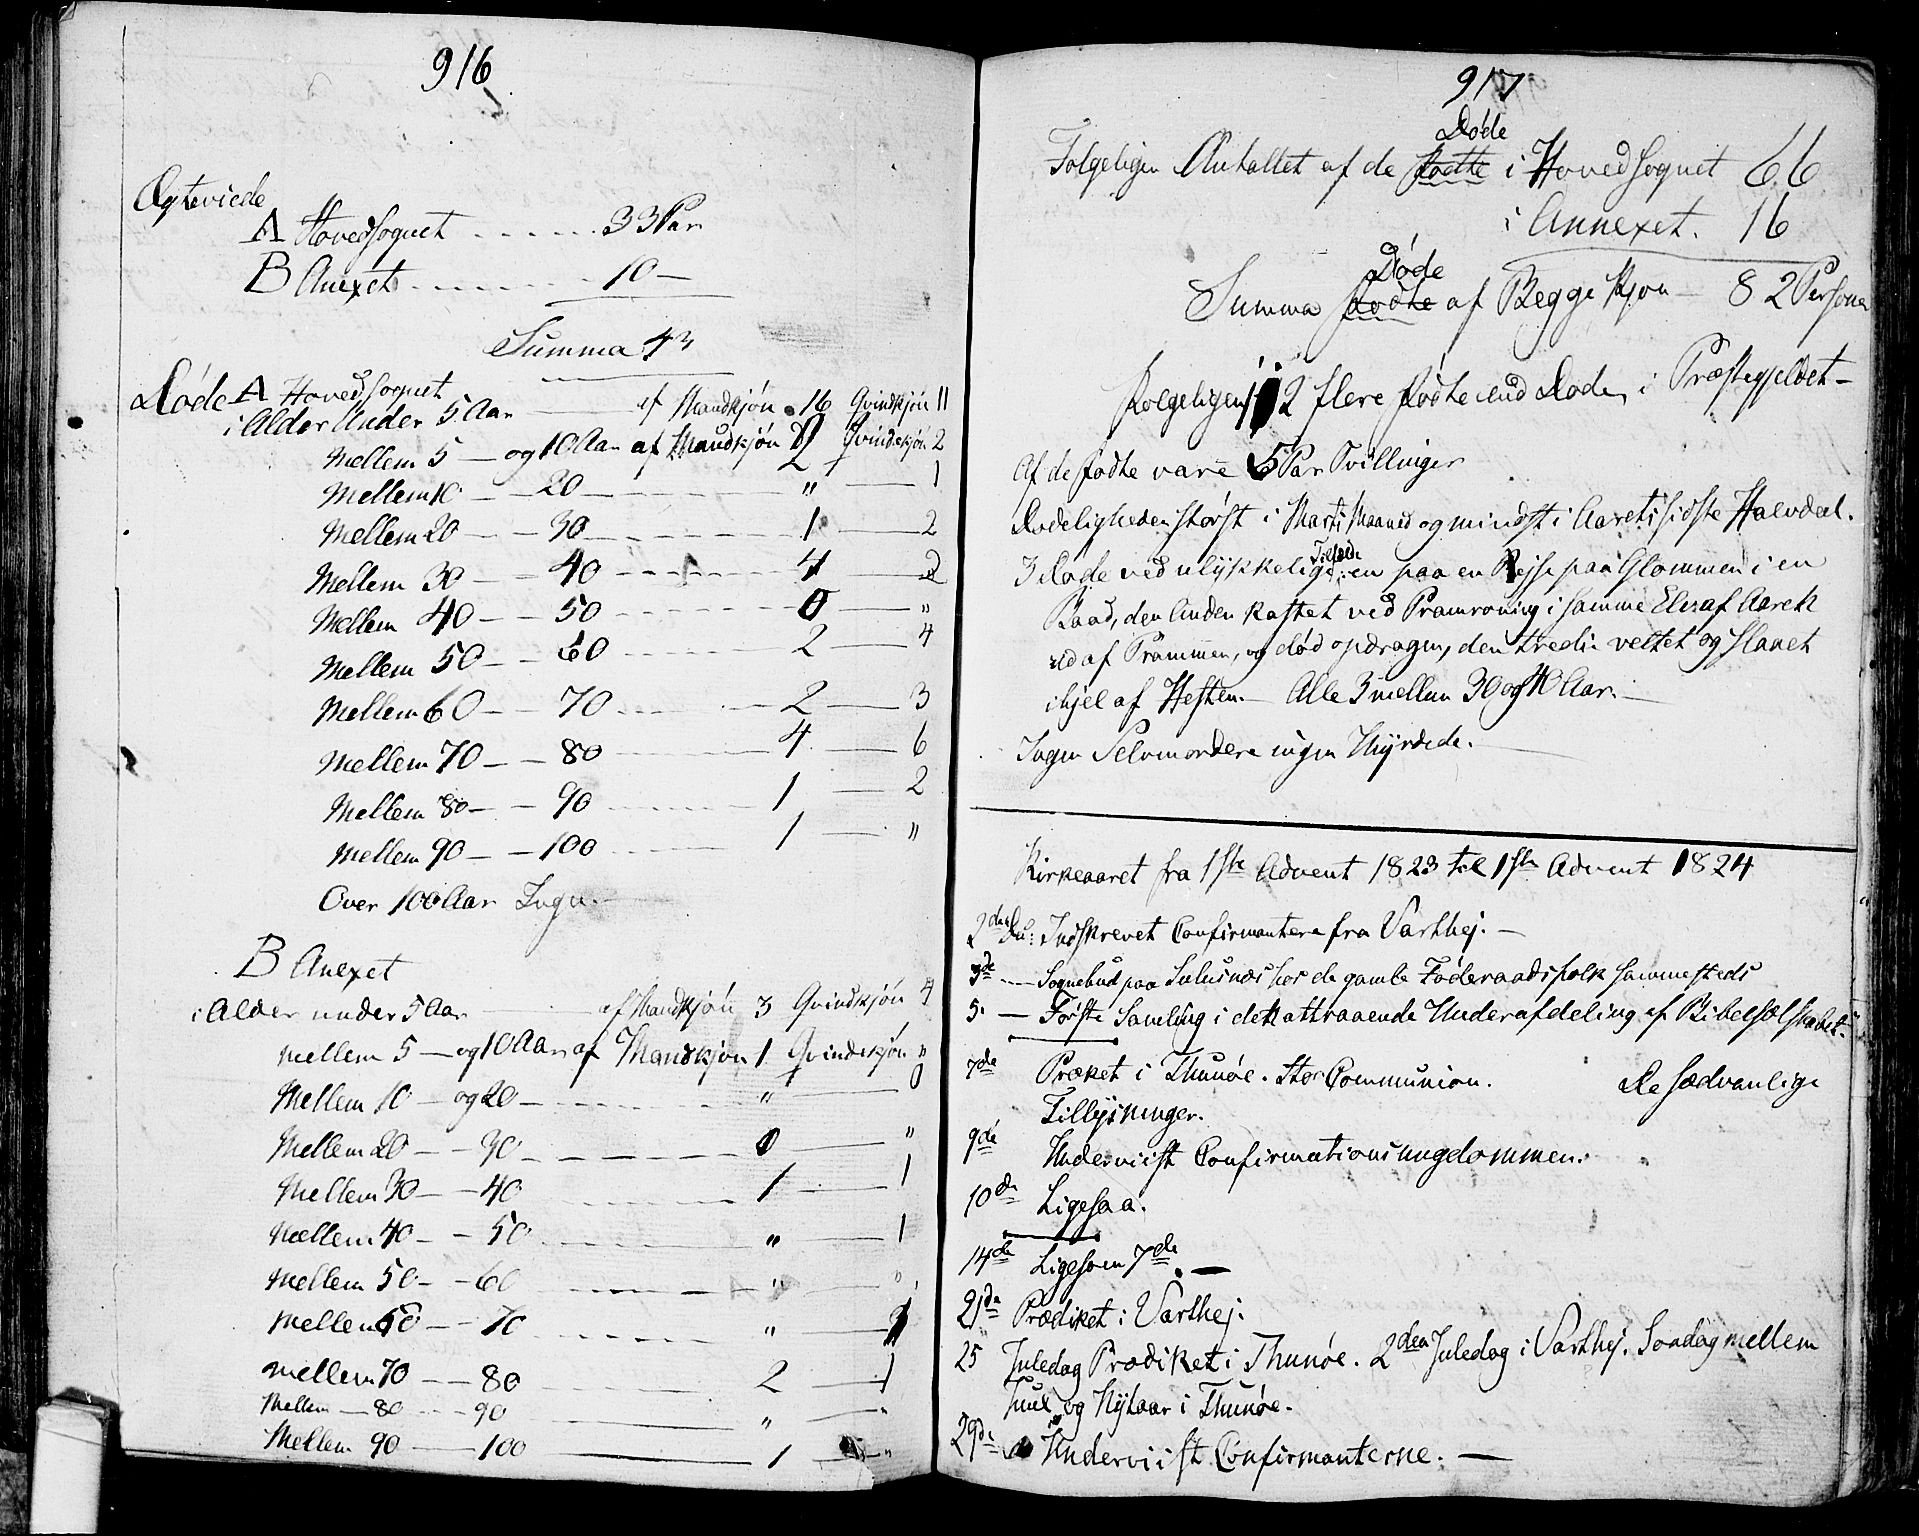 916
Ægteviede
A Hovedsognet ...... 33 Par
B Anexet ...... 10 —
Summa 43
Døde A Hovedsognet
i Alder Under 5 Aar — af Mandkjön 16 Qvindkjön 11
Mellem 5 — og 10 Aar af Mandkjön 2 Qvindekjön 2
Mellem 10 — — 20 — " — 1
Mellem 20 — — 30 — 1 — 2
Mellem 30 — — 40 — 4 — 2
Mellem 40 — — 50 — 0 — "
Mellem 50 — — 60 — 2 — 4
Mellem 60 — — 70 — 2 — 3
Mellem 70 — — 80 — 4 — 6
Mellem 80 — — 90 — 1 — 2
Mellem 90 — — 100 — 1 — "
Over 100 Aar Ingen
B Anexet
i Alder under 5 Aar — af Mandkjön 3 Qvindkjön 4
mellem 5 — og 10 Aar af Mandkjön 1 Qvindekjön "
Mellem 10 — og 20 — " — 0
Mellem 20 — — 30 — 0 — "
Mellem 30 — — 40 — 1 — 1
Mellem 40 — — 50 — " — 1
Mellem 50 — — 60 — " — "
Mellem 60 — — 70 — " — 1
mellem 70 — — 80 — 2 — 1
Mellem — 80 — 90 — " — "
Mellem 90 — 100 — 1 — "
917
Følgeligen Antallet af de fødte Døde i Hovedsognet 66
i Annexet. 16
Summa fødte Døde af Begge Kjøn — 82 Personer
Følgeligen 2 flere fødte end Døde i Præstegjeldet —
Af de fødte vare 5 Par Tvillinger
Dødeligheden störst i Marti Maaned og mindst i Aarets sidste Halvdeel.
3 døde ved ulykkelige Tilfælde; en paa en Rejse paa Glommen i en
Baad, den Anden kastet ved Pramroning i samme Elv af Aarek
ud af Prammen, og død opdragen, den tredie veltet og slaaet
ihjel af Hesten. — Alle 3 mellem 30 og 40 Aar. —
Ingen Selvmordere ingen Myrdede. —
Kirkeaaret fra 1ste Advent 1823 til 1ste Advent 1824
2den Du: Indskrevet Confirmantere fra Varthej. —
3de — Sognebud paa Sulusnæs hos de gamle Föderaadsfolk sammesteds
5. — Første Samling i det attraaende Underafdeling af Bibelselskabet. —
7de Præket i Thunöe. Stor Communion. De sædvanlige
Tillysninger.
9de Underviist Confirmationsungdommen.
10de Ligesaa.
14de Ligesom 7de. —
21de Prædiket i Varthej.
25 Juledag Prædiket i Thunöe. 2den Juledag i Varthej. Søndag mellem
Juul og Nytaar i Thunöe.
29de Underviist Confirmanterne. —